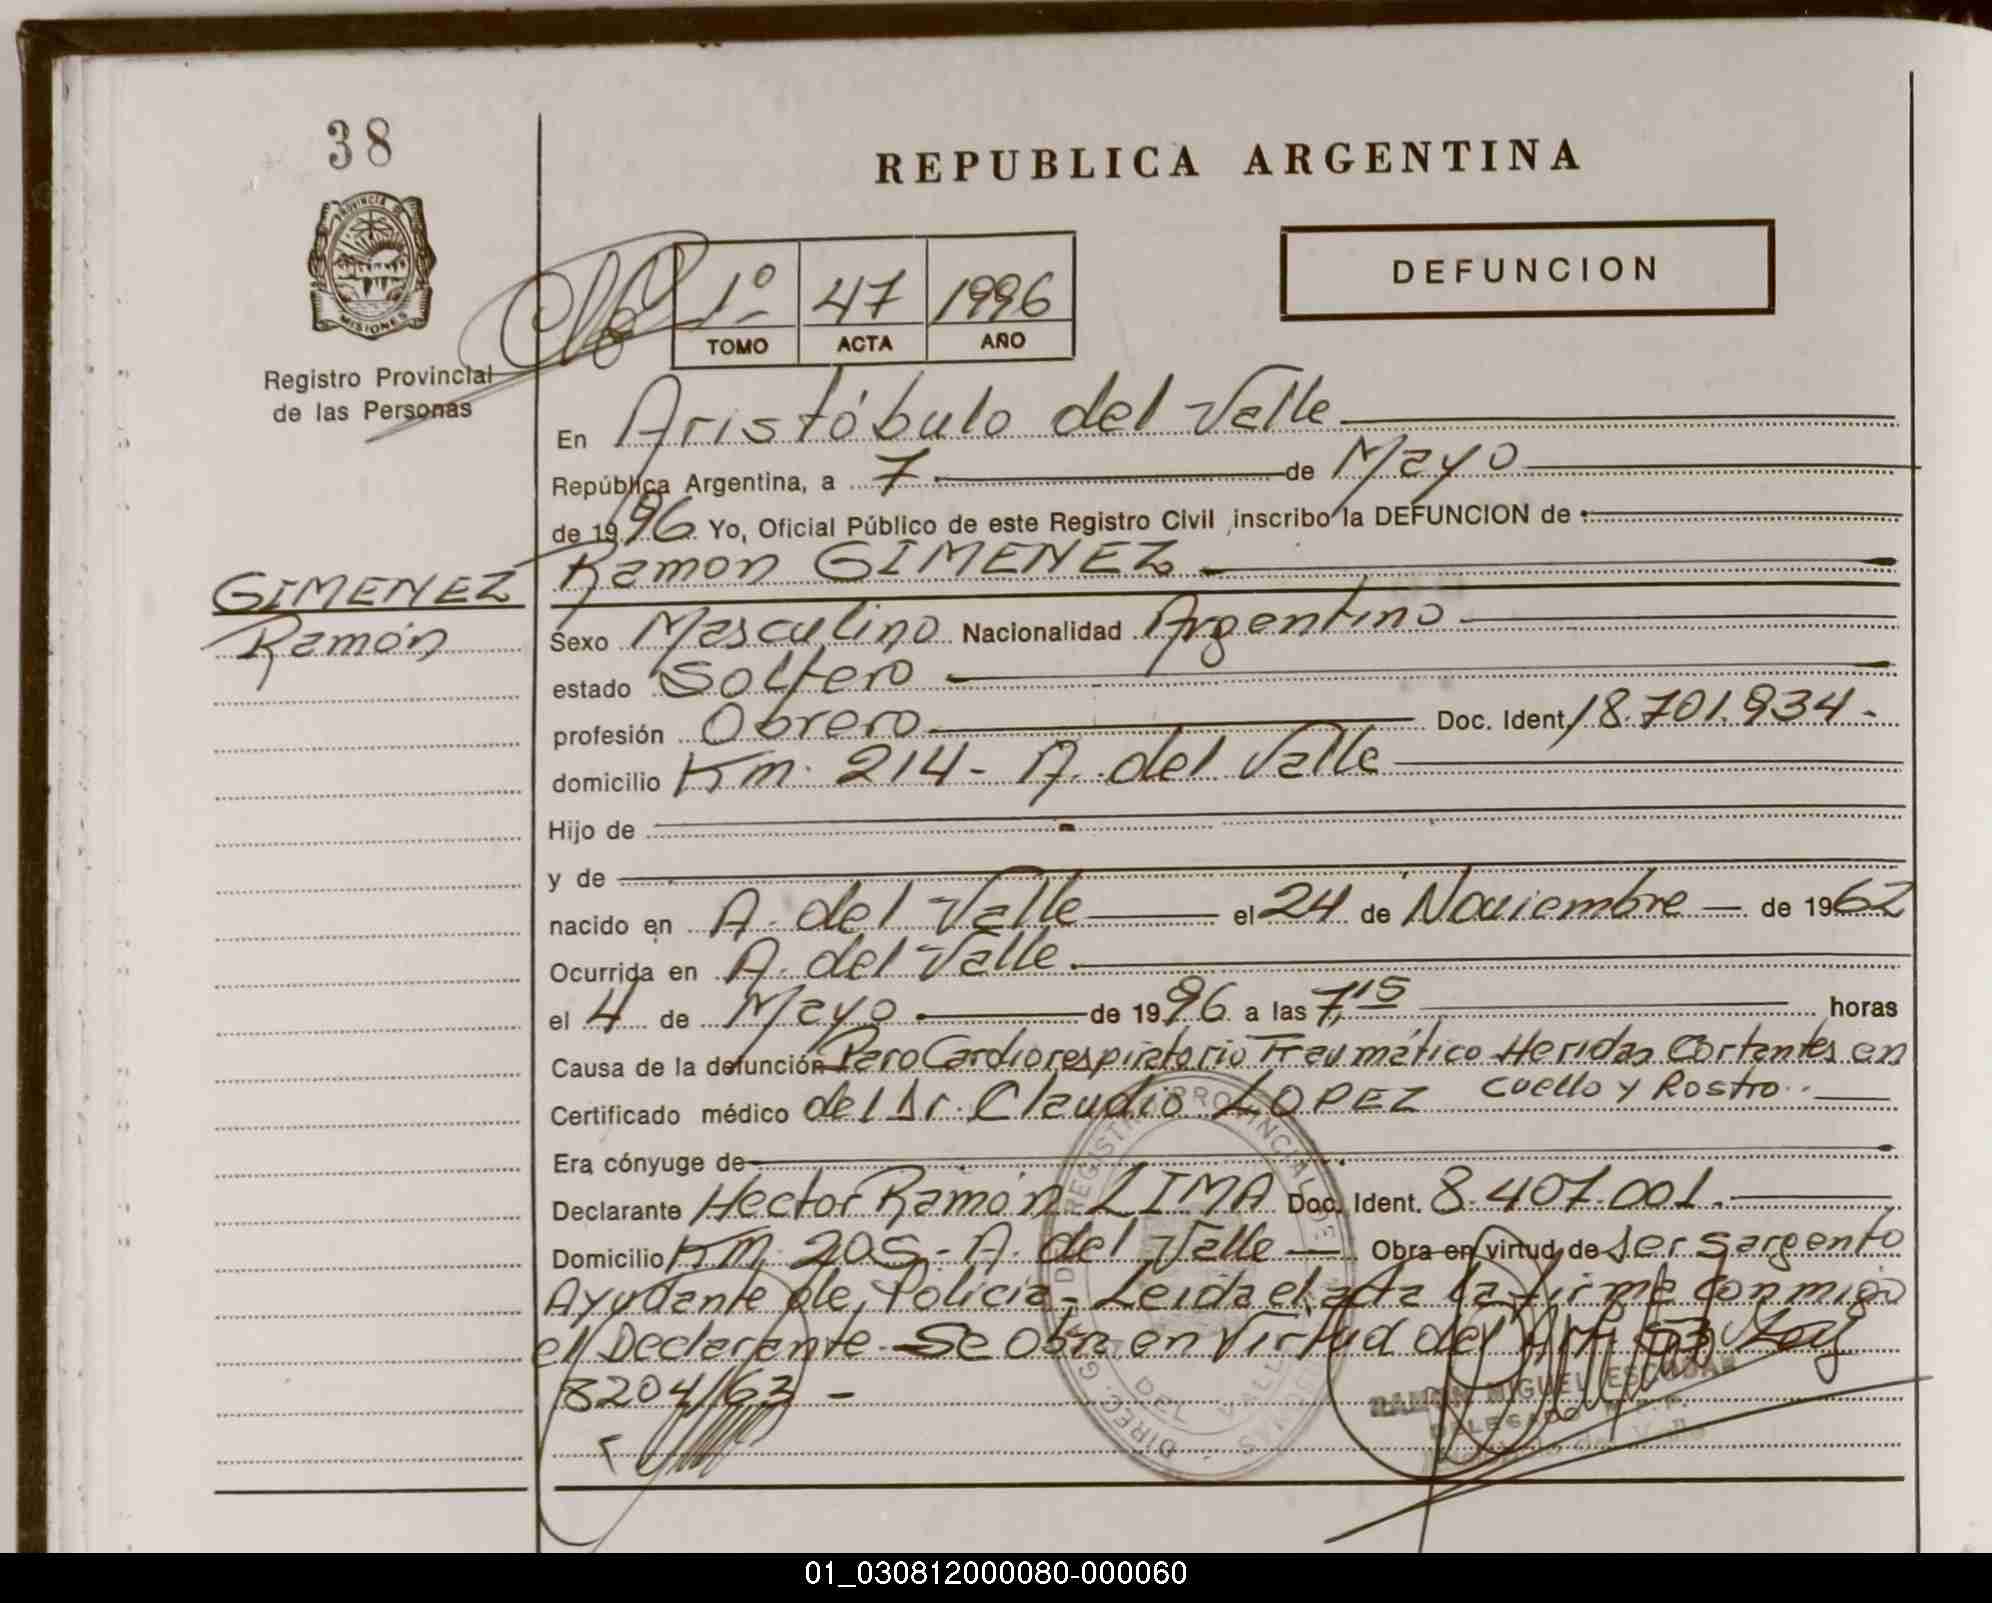 38
REPUBLICA ARGENTINA
PROVINCIA DE
MISIONES
Registro Provincial
de las Personas
1º 47 1996
TOMO ACTA AÑO
DEFUNCION
En Aristóbulo del Valle
República Argentina, a 7 de Mayo
de 1996 Yo, Oficial Público de este Registro Civil inscribo la DEFUNCION de
GIMENEZ
Ramón
Ramon GIMENEZ
Sexo Masculino Nacionalidad Argentino
estado Soltero
profesión Obrero Doc. Ident. 18.701.934.-
domicilio Km. 214- A. del Valle
Hijo de
y de
nacido en A. del Valle el 24 de Noviembre de 1962
Ocurrida en A. del Valle
el 4 de Mayo de 1996 a las 7,15 horas
Causa de la defunción Paro Cardiorespiratorio Traumático Heridas Cortantes en
Cuello y Rostro.
Certificado médico del Dr. Claudio LOPEZ
Era cónyuge de
Declarante Hector Ramón LIMA Doc. Ident. 8.407.001.
Domicilio Km. 205- A. del Valle Obra en virtud de ser Sargento
Ayudante de Policía- Leida el acta la firma conmigo
el Declarante- Se obra en Virtud del Art. 53 Ley
8204/63 -
REGISTRO PROVINCIAL DE
DEL VALLE
MISIONES
DIREC. G
RAMON MIGUEL ESCOBAR
DELEGADO
01_030812000080-000060